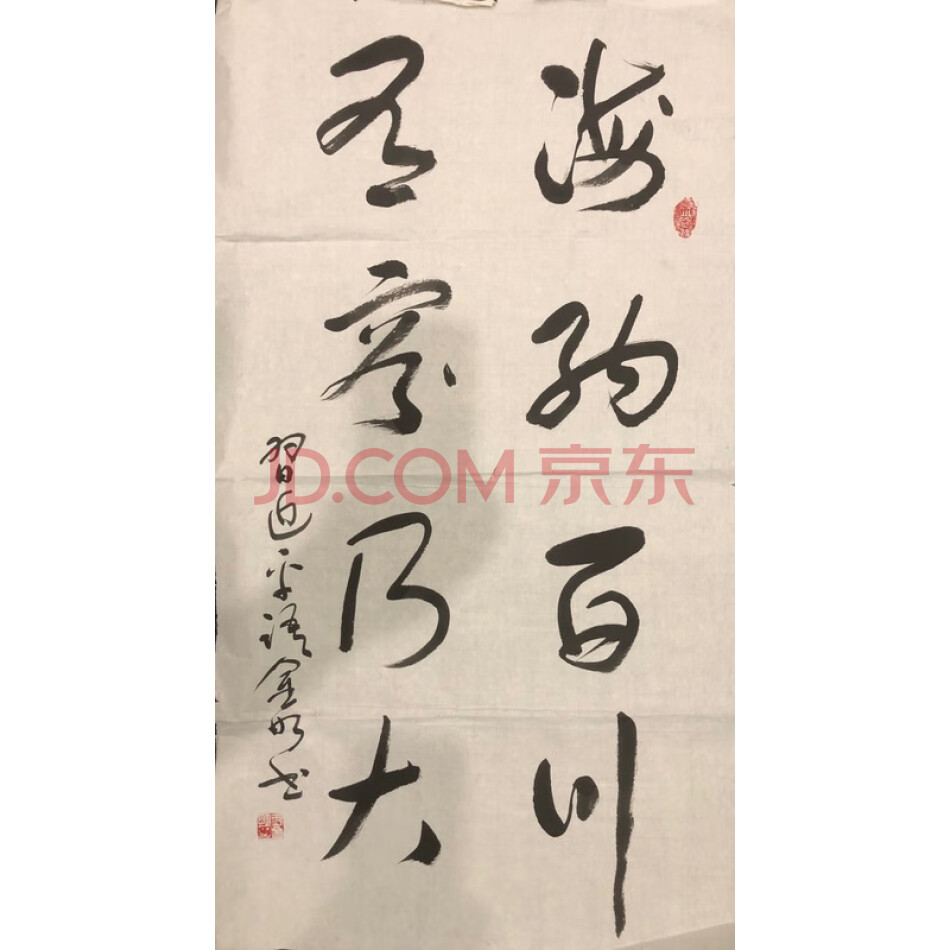 海纳百川
有容乃大
习近平语金明书
JD.COM 京东